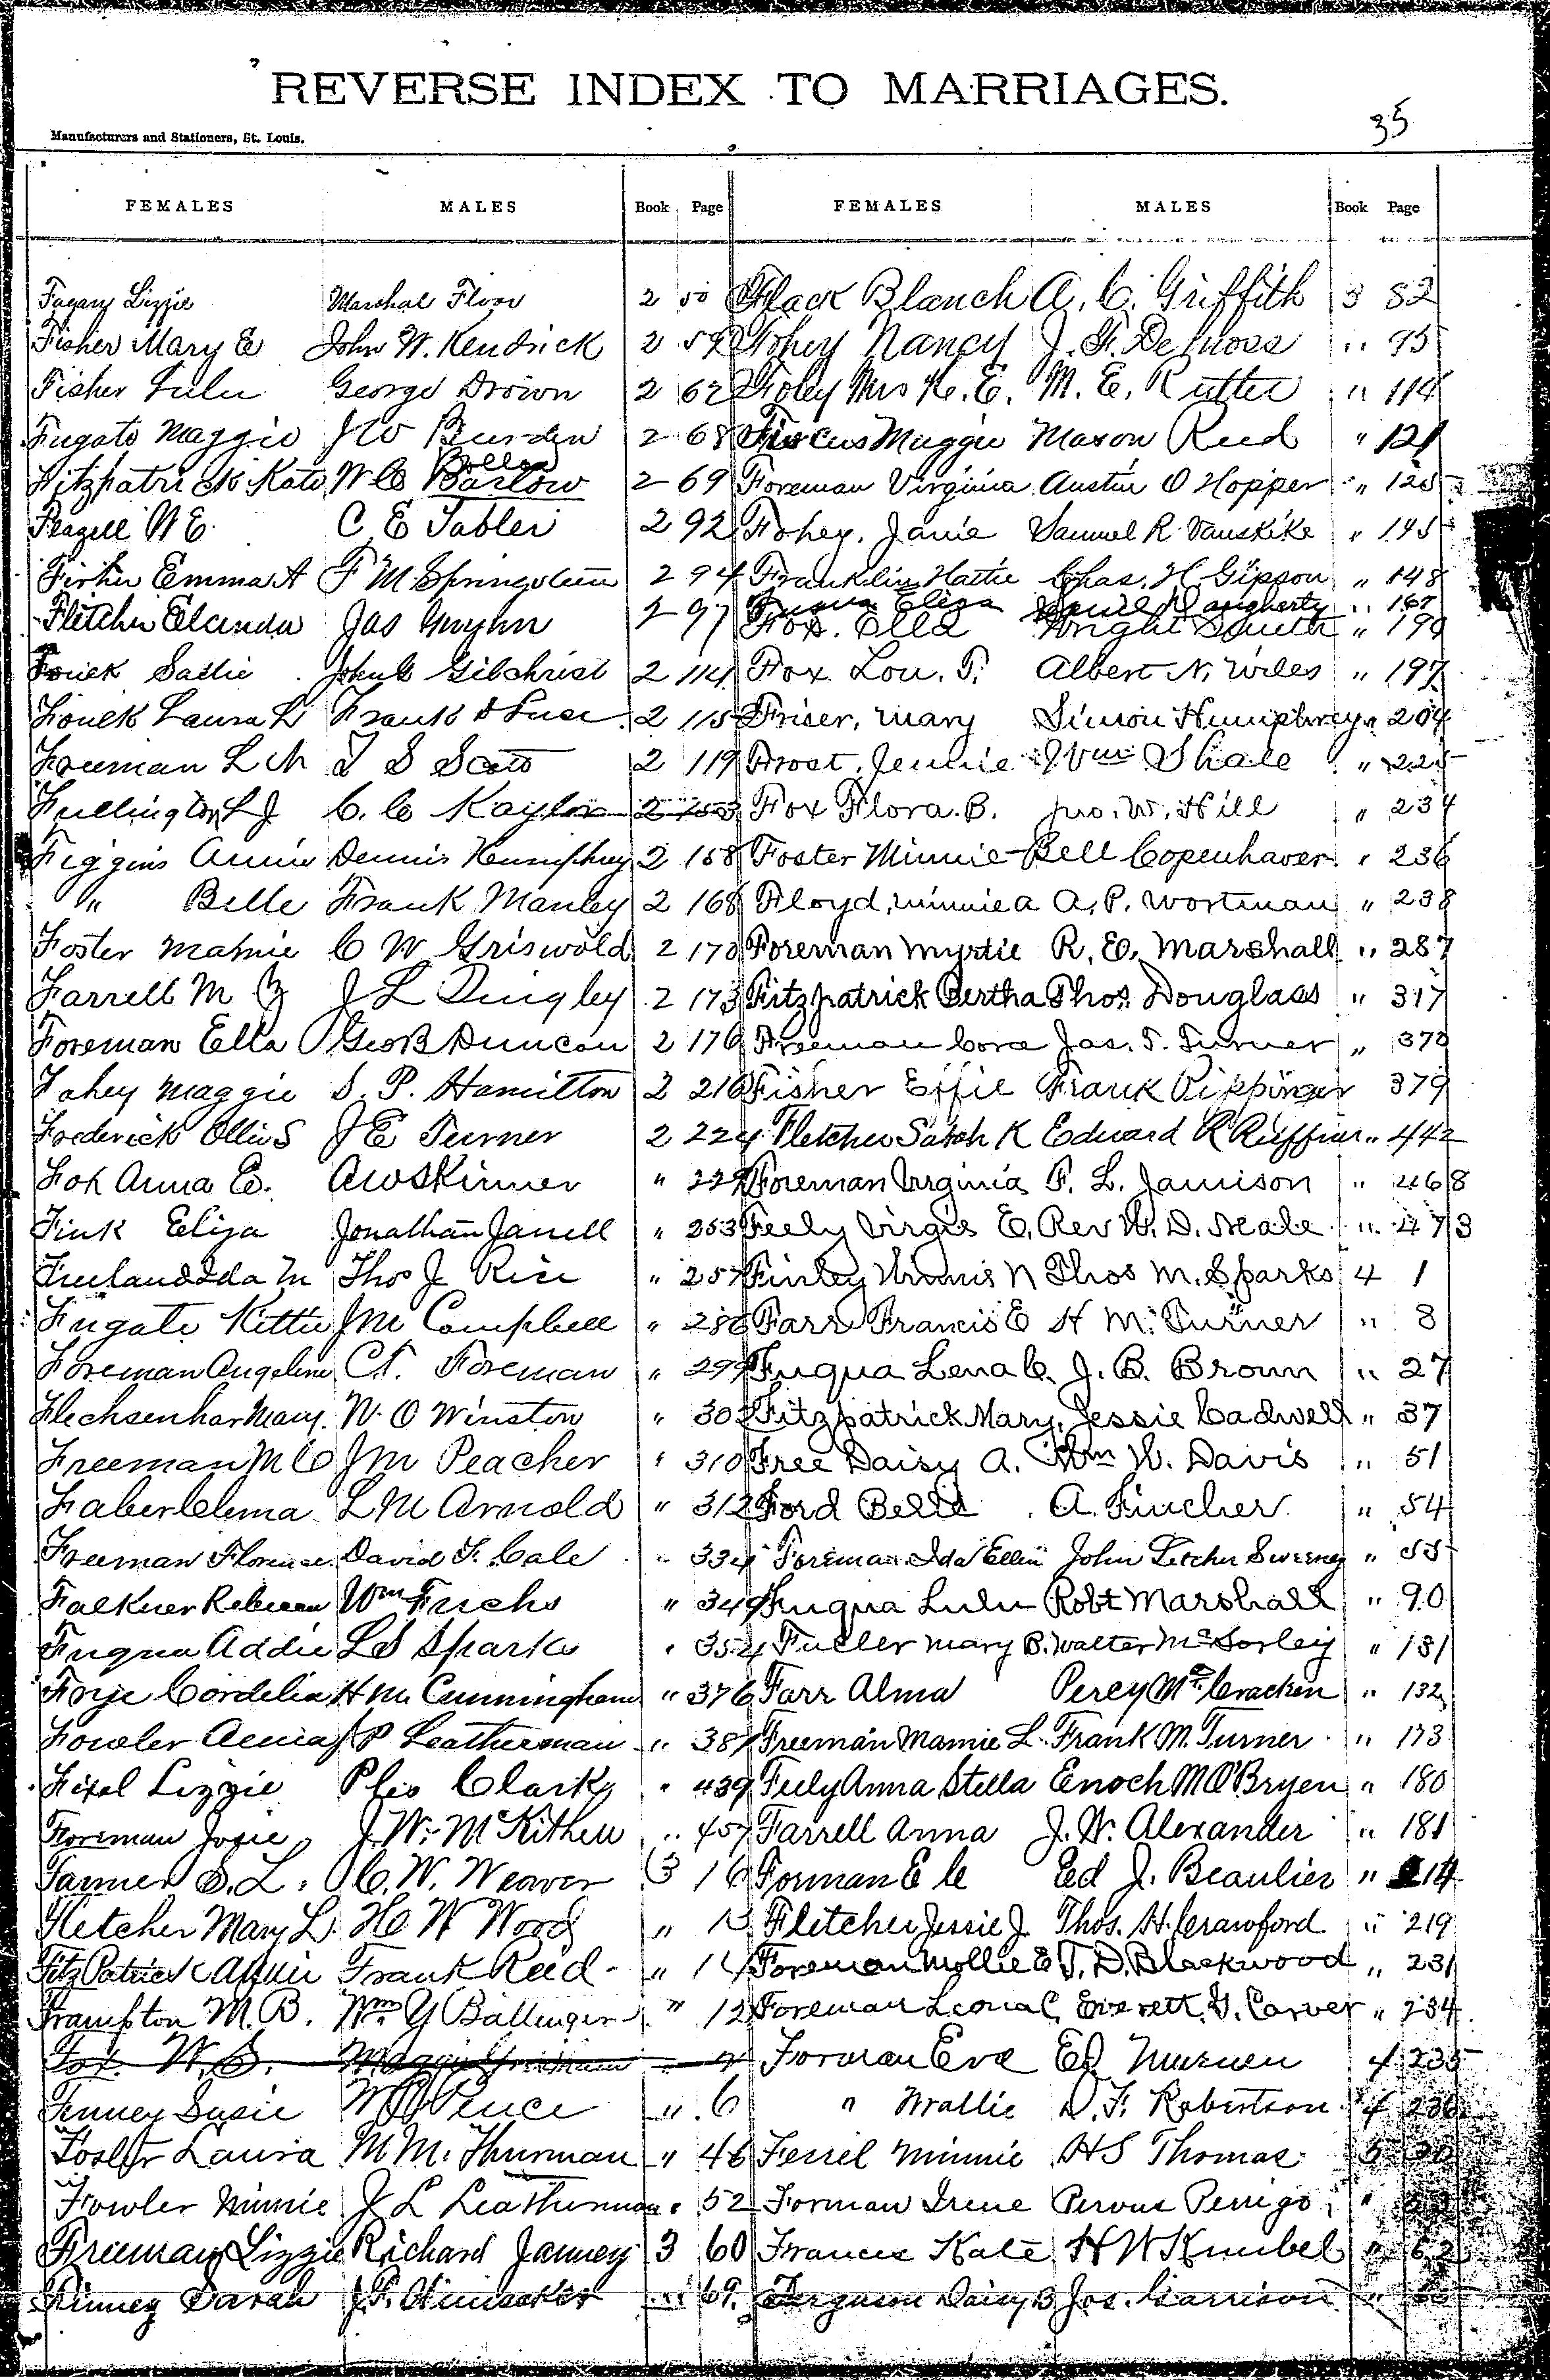 REVERSE INDEX TO MARRIAGES.
35
Manufacturers and Stationers, St. Louis.
FEMALES MALES Book Page FEMALES MALES Book Page
Fugary Lizzie Marshal Floor 2 50
Fisher Mary E John W. Kendrick 2 59
Fisher Lulu George Drown 2 62
Fugate Maggie J W Burden 2 68
Fitzpatrick Kate W C Barlow 2 69
Bollen
Flagell N E. C E Tabler 2 92
Fisher Emma A F M Springsteen 2 94
Fletcher Elcinda Jas Gwynn 2 97
Fouek Sallie John C Gilchrist 2 114
Fouek Laura L Frank 2 115
Freeman L M T S Scott 2 119
Fullington L J C. C Kaylor 2 153
Figgins Annie Dennis Humphrey 2 158
" Belle Frank Manley 2 168
Foster Mamie C W Griswold 2 170
Farrell M J L Quigley 2 173
Foreman Ella Geo B Duncan 2 176
Fahey Maggie S. P. Hamilton 2 216
Frederick Ollie S J E Turner 2 224
Fox Anna E. A W Skinner " 229
Fink Eliza Jonathan Janell " 253
Freeland Ida M Thos J Rice " 257
Fugate Kittie J M Campbell " 286
Foreman Angeline C. T. Foreman " 299
Flechsenhar Mary. W. O Winston " 302
Freeman M C J M Peacher " 310
Faber Clema L M Arnold " 312
Freeman Florence David F. Cale " 334
Falkner Rebecca Wm Fuchs " 349
Fuqua Addie L S Sparks " 354
Frye Cordelia H M Cunningham " 376
Fowler Anna J P Leatherman " 387
Fixel Lizzie Pleo Clark " 439
Foreman Josie J. W. McKithen " 457
Farmer S. L. C. W. Weaver 3 16
Fletcher Mary L. H C W Wood " 13
FitzPatrick Annie Frank Reed "
Frampton M. B. Wm Y Ballinger " 12
Fox W. S. Maggie
Finney Susie Pence " 6
Foster Laura M M. Thurman " 46
Fowler Minnie J L Leatherman " 52
Freeman Lizzie Richard Janney 3 60
Finney Sarah " 69.
Flack Blanch A. C. Griffith 3 82
Fohey Nancy J. F. DeMoss " 95
Foley Mrs K. E. M. E. Rutter " 114
Fircus Maggie Mason Reed " 121
Foreman Virginia Austin O Hopper " 125
Fohey, Janie Samuel R Vanskike " 145
Franklin Hattie Chas. H. Gipson " 148
Fuqua Eliza Daugherty " 167
Fox. Ella Wright Smith " 190
Fox Lou. T. Albert N. Wiles " 197
Friser, Mary Simon Humphrey " 204
Frost, Jennie Wm Shale " 225
Fox Flora. B. Jno. W. Hill " 234
Foster Minnie Bell Copenhaver " 236
Floyd, Minnie A A. P. Wortman " 238
Foreman Myrtie R. E. Marshall " 287
Fitzpatrick Bertha Thos. Douglass " 317
Freeman Cora Jas. T. Turner " 370
Fisher Effie Frank Pippinger 379
Fletcher Sarah K Edward R Ruffner " 442
Foreman Virginia F. L. Jamison " 468
Feely Virgie E. Rev W. D. Neale " 473
Finley N Thos M. Sparks 4 1
Farr Francis E H M. Turner " 8
Fuqua Lena C. J. B. Brown " 27
Fitzpatrick Mary, Jessie Cadwell " 37
Free Daisy A. Wm W. Davis " 51
Ford Belle A. Fincher " 54
Foreman Ida Ellen John Letcher Sweeney " 55
Fuqua Lulu Robt Marshall " 90
Fuller Mary B. Walter McSorley " 131
Farr Alma Percy McCracken " 132
Freeman Mamie L. Frank M. Turner " 173
Feely Anna Stella Enoch M O'Bryen " 180
Farrell Anna J. W. Alexander " 181
Forman E le Ed J. Beaulier " 214
Fletcher Jessie J. Thos. H. Crawford " 219
Foreman Mollie E T. D. Blackwood " 231
Foreman Leona C Everett. G. Carver " 234
Forman Eva Ed Murnen 4 235
" Mallie D. F. Robertson 4 236
Ferrel Minnie H S Thomas 5 20
Forman Irene Pervus Perrigo "
Frances Kate H W Knubel " 62
Ferguson Daisy B Jos. Garrison "